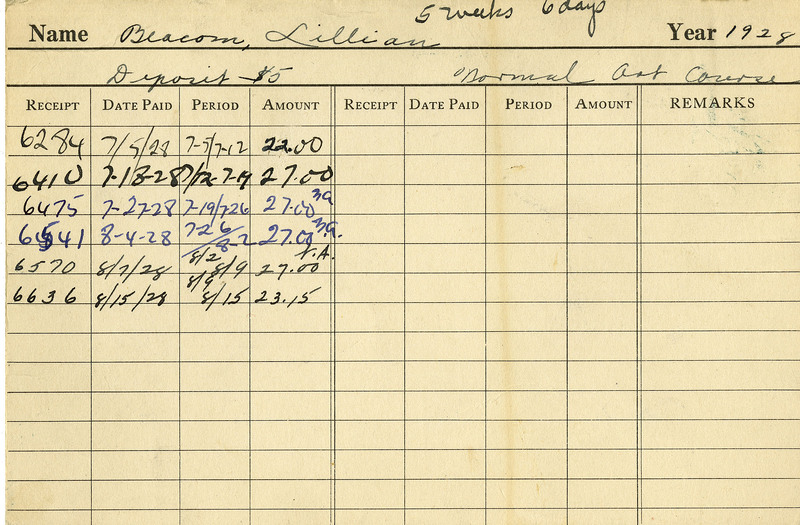 5 weeks 6 days
Name Beacom, Lillian Year 1928
Deposit $5 Normal Art Course
RECEIPT DATE PAID PERIOD AMOUNT RECEIPT DATE PAID PERIOD AMOUNT REMARKS
6284 7/5/28 7-5/7-12 22.00
6410 7-13-28 7/12-7-19 27.00
6475 7-27-28 7-19/7-26 27.00
6541 8-4-28 7-26/8-2 27.00
6570 8/7/28 8/2 8/9 27.00
6636 8/15/28 8/9 8/15 23.15